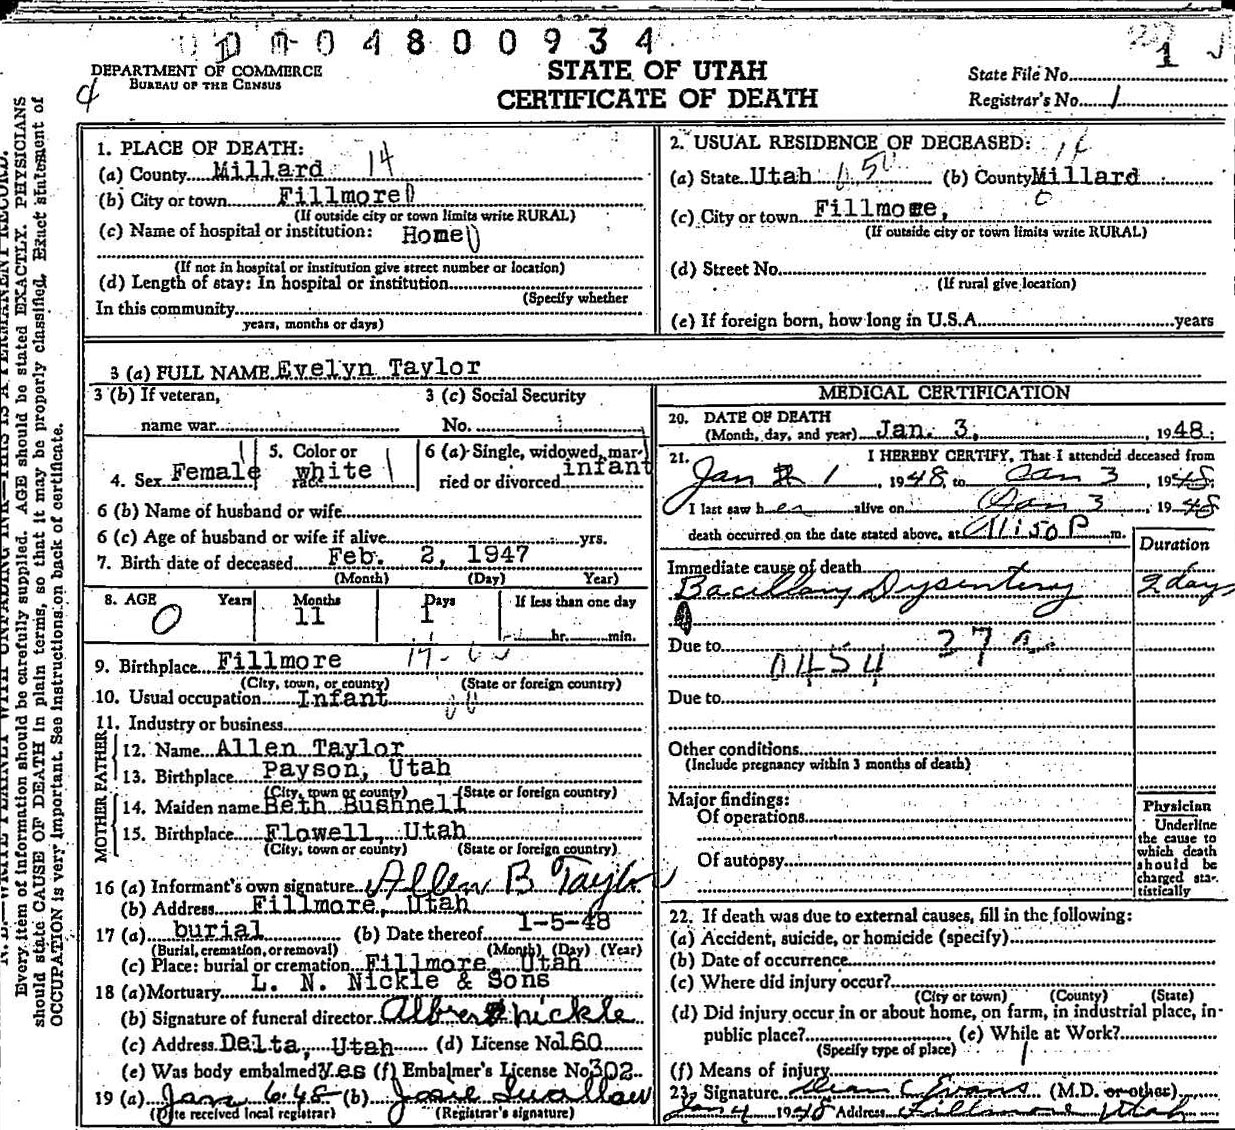 0004800934
DEPARTMENT OF COMMERCE
BUREAU OF THE CENSUS
4
STATE OF UTAH
CERTIFICATE OF DEATH
State File No. 1
Registrar's No. 1
N. B.—WRITE PLAINLY WITH UNFADING INK—THIS IS A PERMANENT RECORD.
Every item of information should be carefully supplied. AGE should be stated EXACTLY. PHYSICIANS
should state CAUSE OF DEATH in plain terms, so that it may be properly classified. Exact statement of
OCCUPATION is very important. See instructions on back of certificate.
1. PLACE OF DEATH:
(a) County Millard 14
(b) City or town Fillmore 0
(If outside city or town limits write RURAL)
(c) Name of hospital or institution: Home 0
(If not in hospital or institution give street number or location)
(d) Length of stay: In hospital or institution
(Specify whether
In this community
years, months or days)
2. USUAL RESIDENCE OF DECEASED: 14
(a) State Utah 650 (b) County Millard
0
(c) City or town Fillmore,
(If outside city or town limits write RURAL)
(d) Street No.
(If rural give location)
(e) If foreign born, how long in U.S.A. years
3 (a) FULL NAME Evelyn Taylor
3 (b) If veteran,
name war
3 (c) Social Security
No.
4. Sex Female 1
5. Color or
race white 1
6 (a) Single, widowed, mar-
ried or divorced infant
6 (b) Name of husband or wife
6 (c) Age of husband or wife if alive yrs.
7. Birth date of deceased Feb. 2, 1947
(Month) (Day) Year)
8. AGE Years Months Days If less than one day
0 11 1 hr. min.
9. Birthplace Fillmore
(City, town, or county) (State or foreign country)
10. Usual occupation Infant
11. Industry or business
FATHER
12. Name Allen Taylor
13. Birthplace Payson, Utah
(City, town or county) (State or foreign country)
MOTHER
14. Maiden name Beth Bushnell
15. Birthplace Flowell, Utah
(City, town or county) (State or foreign country)
16 (a) Informant's own signature Allen B Taylor
(b) Address Fillmore, Utah
17 (a) burial (b) Date thereof 1-5-48
(Burial, cremation, or removal) (Month) (Day) (Year)
(c) Place: burial or cremation Fillmore, Utah
18 (a) Mortuary L. N. Nickle & Sons
(b) Signature of funeral director Albert Nickle
(c) Address Delta, Utah (d) License No. 160
(e) Was body embalmed? yes (f) Embalmer's License No. 302
19 (a) Jan 6 48 (b) Josie
(Date received local registrar) (Registrar's signature)
MEDICAL CERTIFICATION
20. DATE OF DEATH
(Month, day, and year) Jan. 3, , 1948;
21. I HEREBY CERTIFY, That I attended deceased from
Jan 1, 1948, to Jan 3, 1948;
I last saw her alive on Jan 3, 1948
death occurred on the date stated above, at 11:50 P m.
Duration
Immediate cause of death
Bacillary Dysentery 2 days
Due to 27a
0454
Due to
Other conditions
(Include pregnancy within 3 months of death)
Major findings:
Of operations
Of autopsy
Physician
Underline
the cause to
which death
should be
charged sta-
tistically
22. If death was due to external causes, fill in the following:
(a) Accident, suicide, or homicide (specify)
(b) Date of occurrence
(c) Where did injury occur?
(City or town) (County) (State)
(d) Did injury occur in or about home, on farm, in industrial place, in-
public place? (e) While at Work?
(Specify type of place)
(f) Means of injury
23. Signature Dean C Evans (M.D. or other)
Jan 4 1948 Address Fillmore Utah